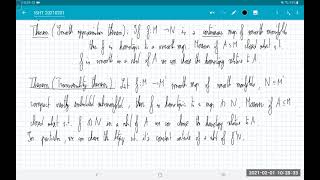 ISHT 20210201
Theorem (Smooth approximation theorem): If f: M → N is a continuous map of smooth manifolds,
then f is homotopic to a smooth map. Moreover if A ⊂ M closed subset s.t.
f is smooth on a nbhd of A we can choose the homotopy relative to A.
Theorem (Transversality theorem): Let f: M → M' smooth map of smooth manifolds, N ⊂ M'
compact smoothly embedded submanifold, then f is homotopic to a map ⋔ N. Moreover if A ⊂ M
closed subset s.t. f ⋔ N on a nbhd of A we can choose the homotopy relative to A.
In particular, we can choose the htpy s.t. it's constant outside of a nbhd of f⁻¹N.
2021-02-01 10:28:33